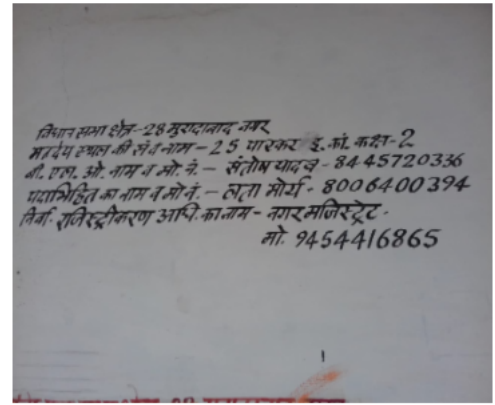 विधान सभा क्षेत्र-28 मुरादाबाद नगर
मतदेय स्थल की सं व नाम - 25 पारकर इ. कॉ. कक्ष-2
बी. एल. ओ. नाम व मो. नं. - संतोष यादव - 8445720336
पदाभिहित का नाम व मो नं. - लता मौर्य - 8006400394
निर्वा. रजिस्ट्रीकरण अधि. का नाम - नगर मजिस्ट्रेट.
मो. 9454416865